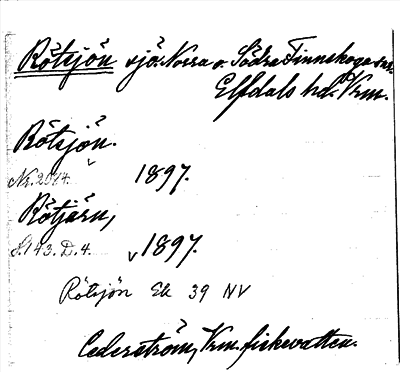 Rötsjön sjö. Norra o. Södra Finnskoga snr.
Elfdals hd. Vrm.
Rötsjön.
Nr. 2044. 1897.
Rötjärn,
S. 143. D. 4. 1897.
Rötsjön Ek 39 NV
Cederström, Vrm. fiskevatten.